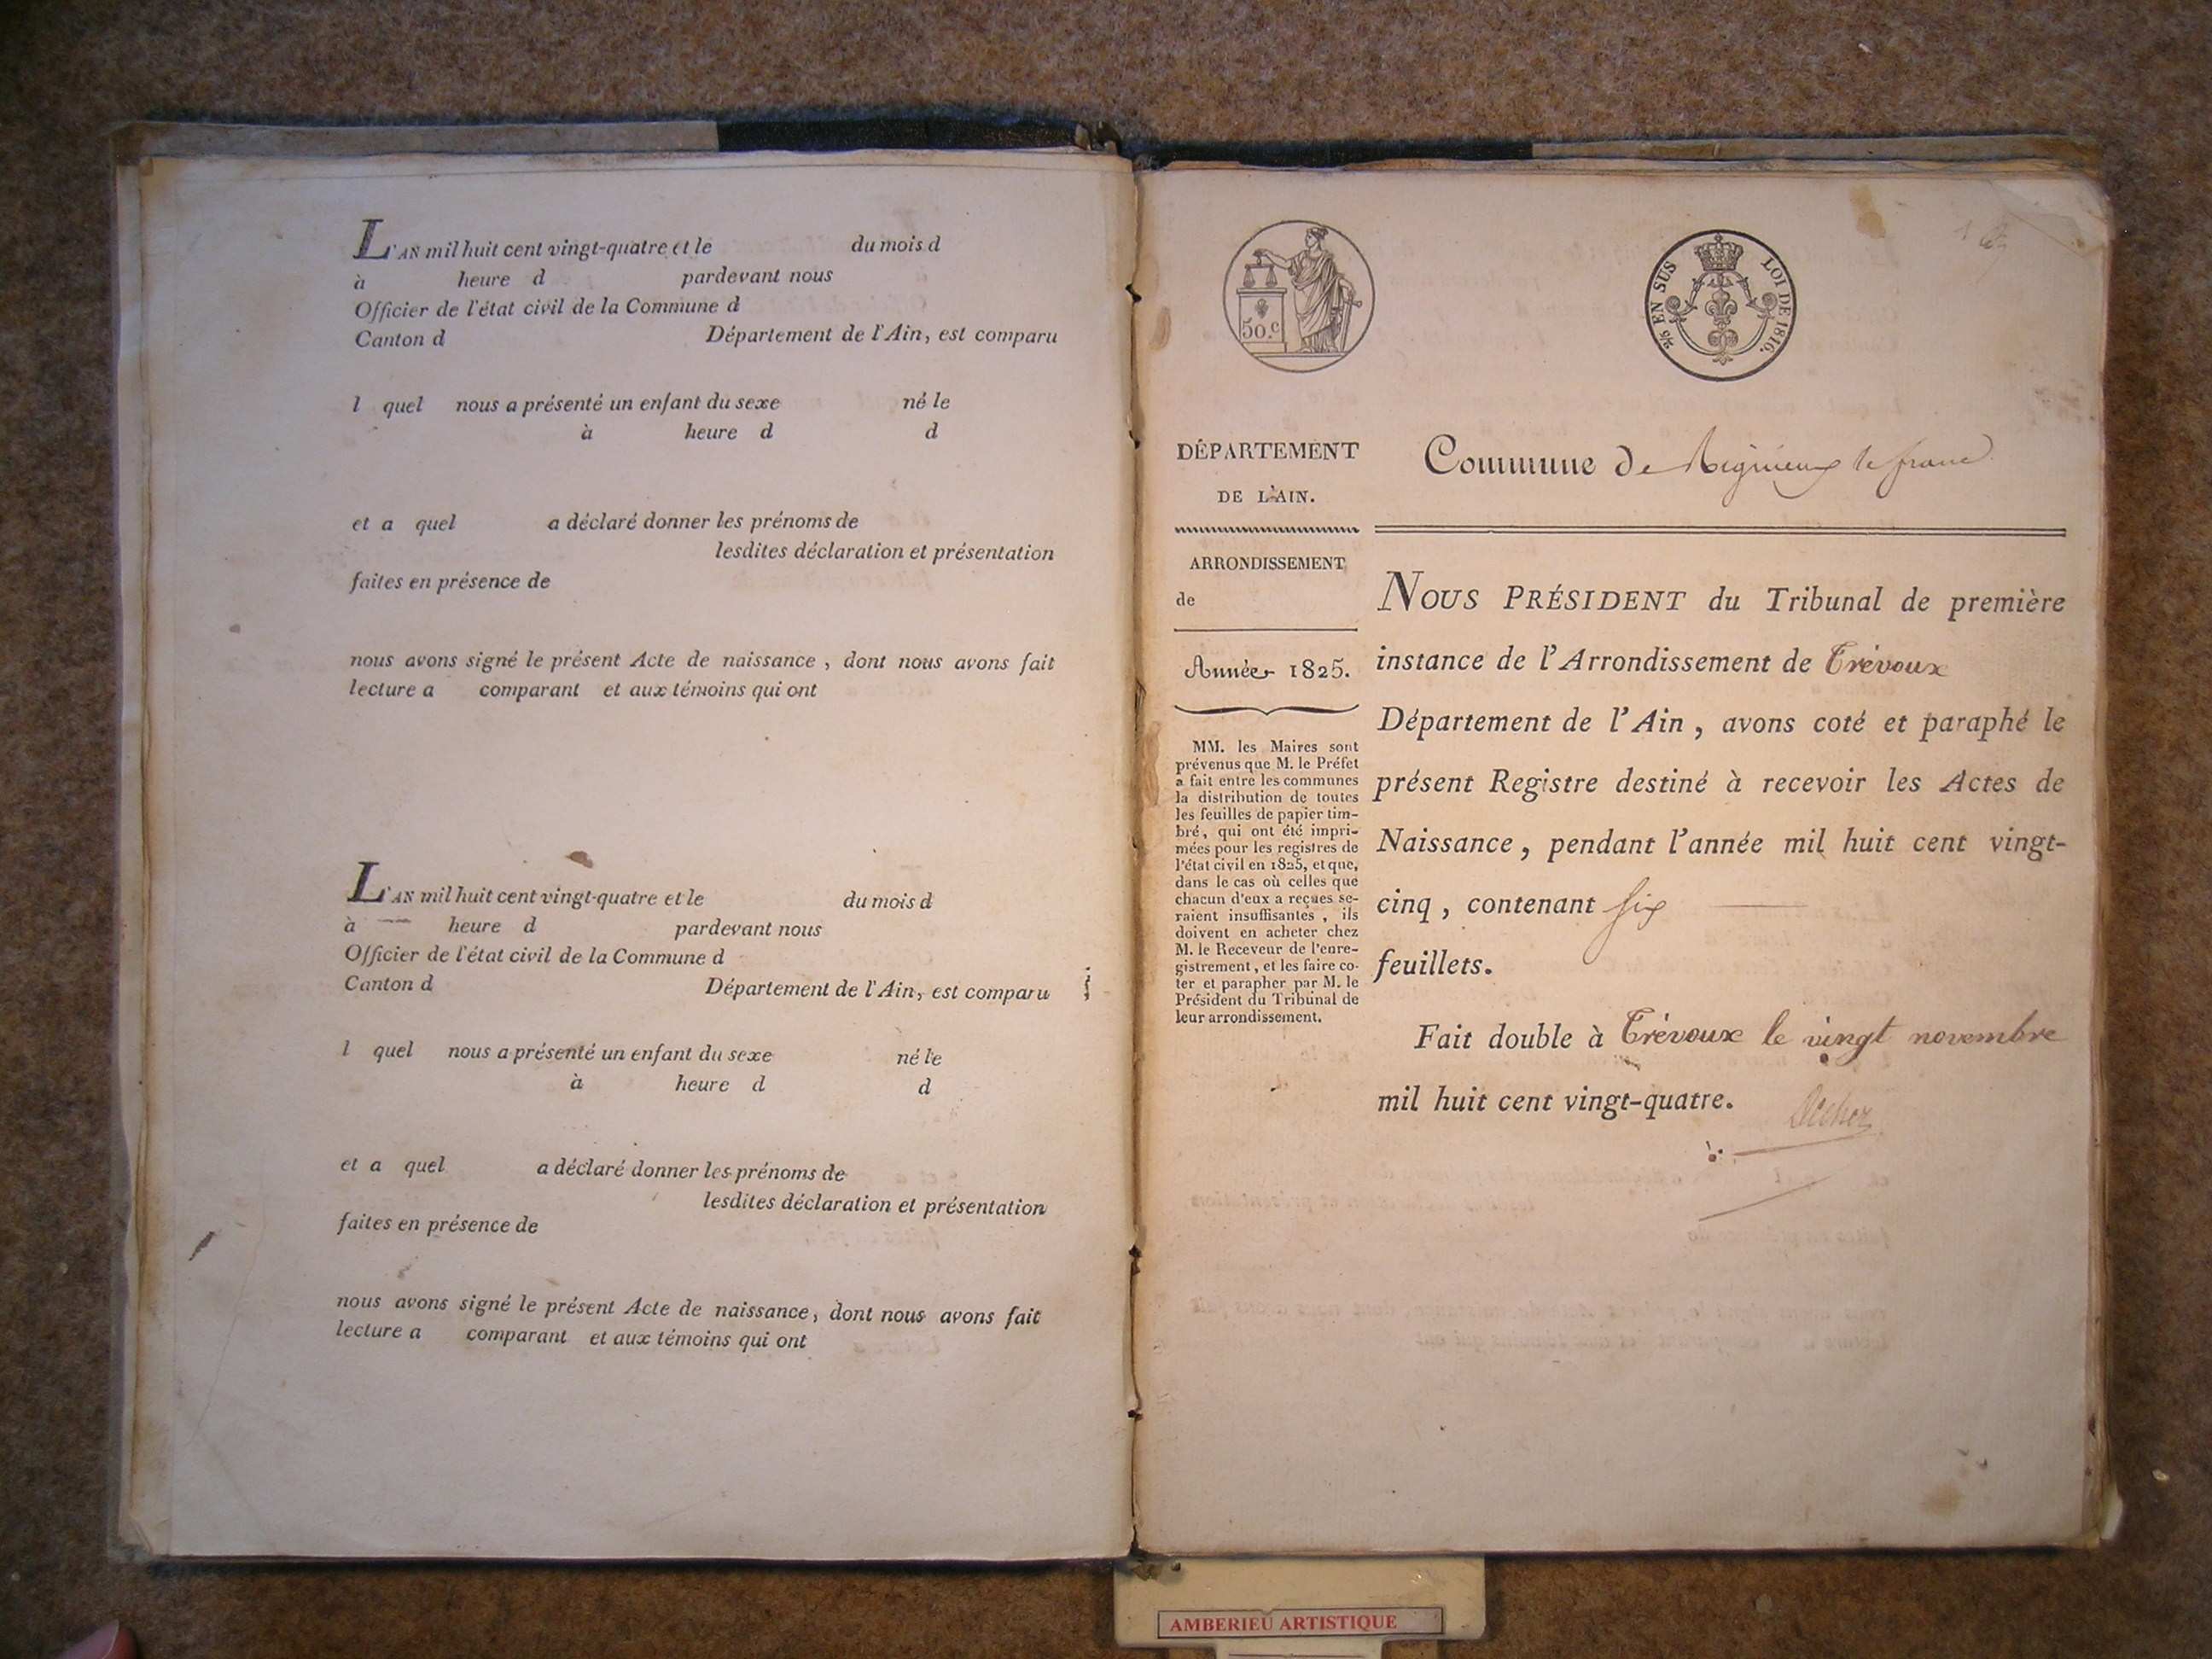 L'AN mil huit cent vingt-quatre et le du mois d
à heure d pardevant nous
Officier de l'état civil de la Commune d
Canton d Département de l'Ain, est comparu
l quel nous a présenté un enfant du sexe né le
à heure d d
et a quel a déclaré donner les prénoms de
lesdites déclaration et présentation
faites en présence de
nous avons signé le présent Acte de naissance, dont nous avons fait
lecture a comparant et aux témoins qui ont
L'AN mil huit cent vingt-quatre et le du mois d
à heure d pardevant nous
Officier de l'état civil de la Commune d
Canton d Département de l'Ain, est comparu
l quel nous a présenté un enfant du sexe né le
à heure d d
et a quel a déclaré donner les prénoms de
lesdites déclaration et présentation
faites en présence de
nous avons signé le présent Acte de naissance, dont nous avons fait
lecture a comparant et aux témoins qui ont
50.c
EN SUS LOI DE 1816.
DÉPARTEMENT
DE L'AIN.
ARRONDISSEMENT
de
Année 1825.
MM. les Maires sont
prévenus que M. le Préfet
a fait entre les communes
la distribution de toutes
les feuilles de papier tim-
bré, qui ont été impri-
mées pour les registres de
l'état civil en 1825, et que,
dans le cas où celles que
chacun d'eux a reçues se-
raient insuffisantes, ils
doivent en acheter chez
M. le Receveur de l'enre-
gistrement, et les faire co-
ter et parapher par M. le
Président du Tribunal de
leur arrondissement.
Commune de Rignieux le franc
NOUS PRÉSIDENT du Tribunal de première
instance de l'Arrondissement de Trévoux
Département de l'Ain, avons coté et paraphé le
présent Registre destiné à recevoir les Actes de
Naissance, pendant l'année mil huit cent vingt-
cinq, contenant six
feuillets.
Fait double à Trévoux le vingt novembre
mil huit cent vingt-quatre.
AMBERIEU ARTISTIQUE